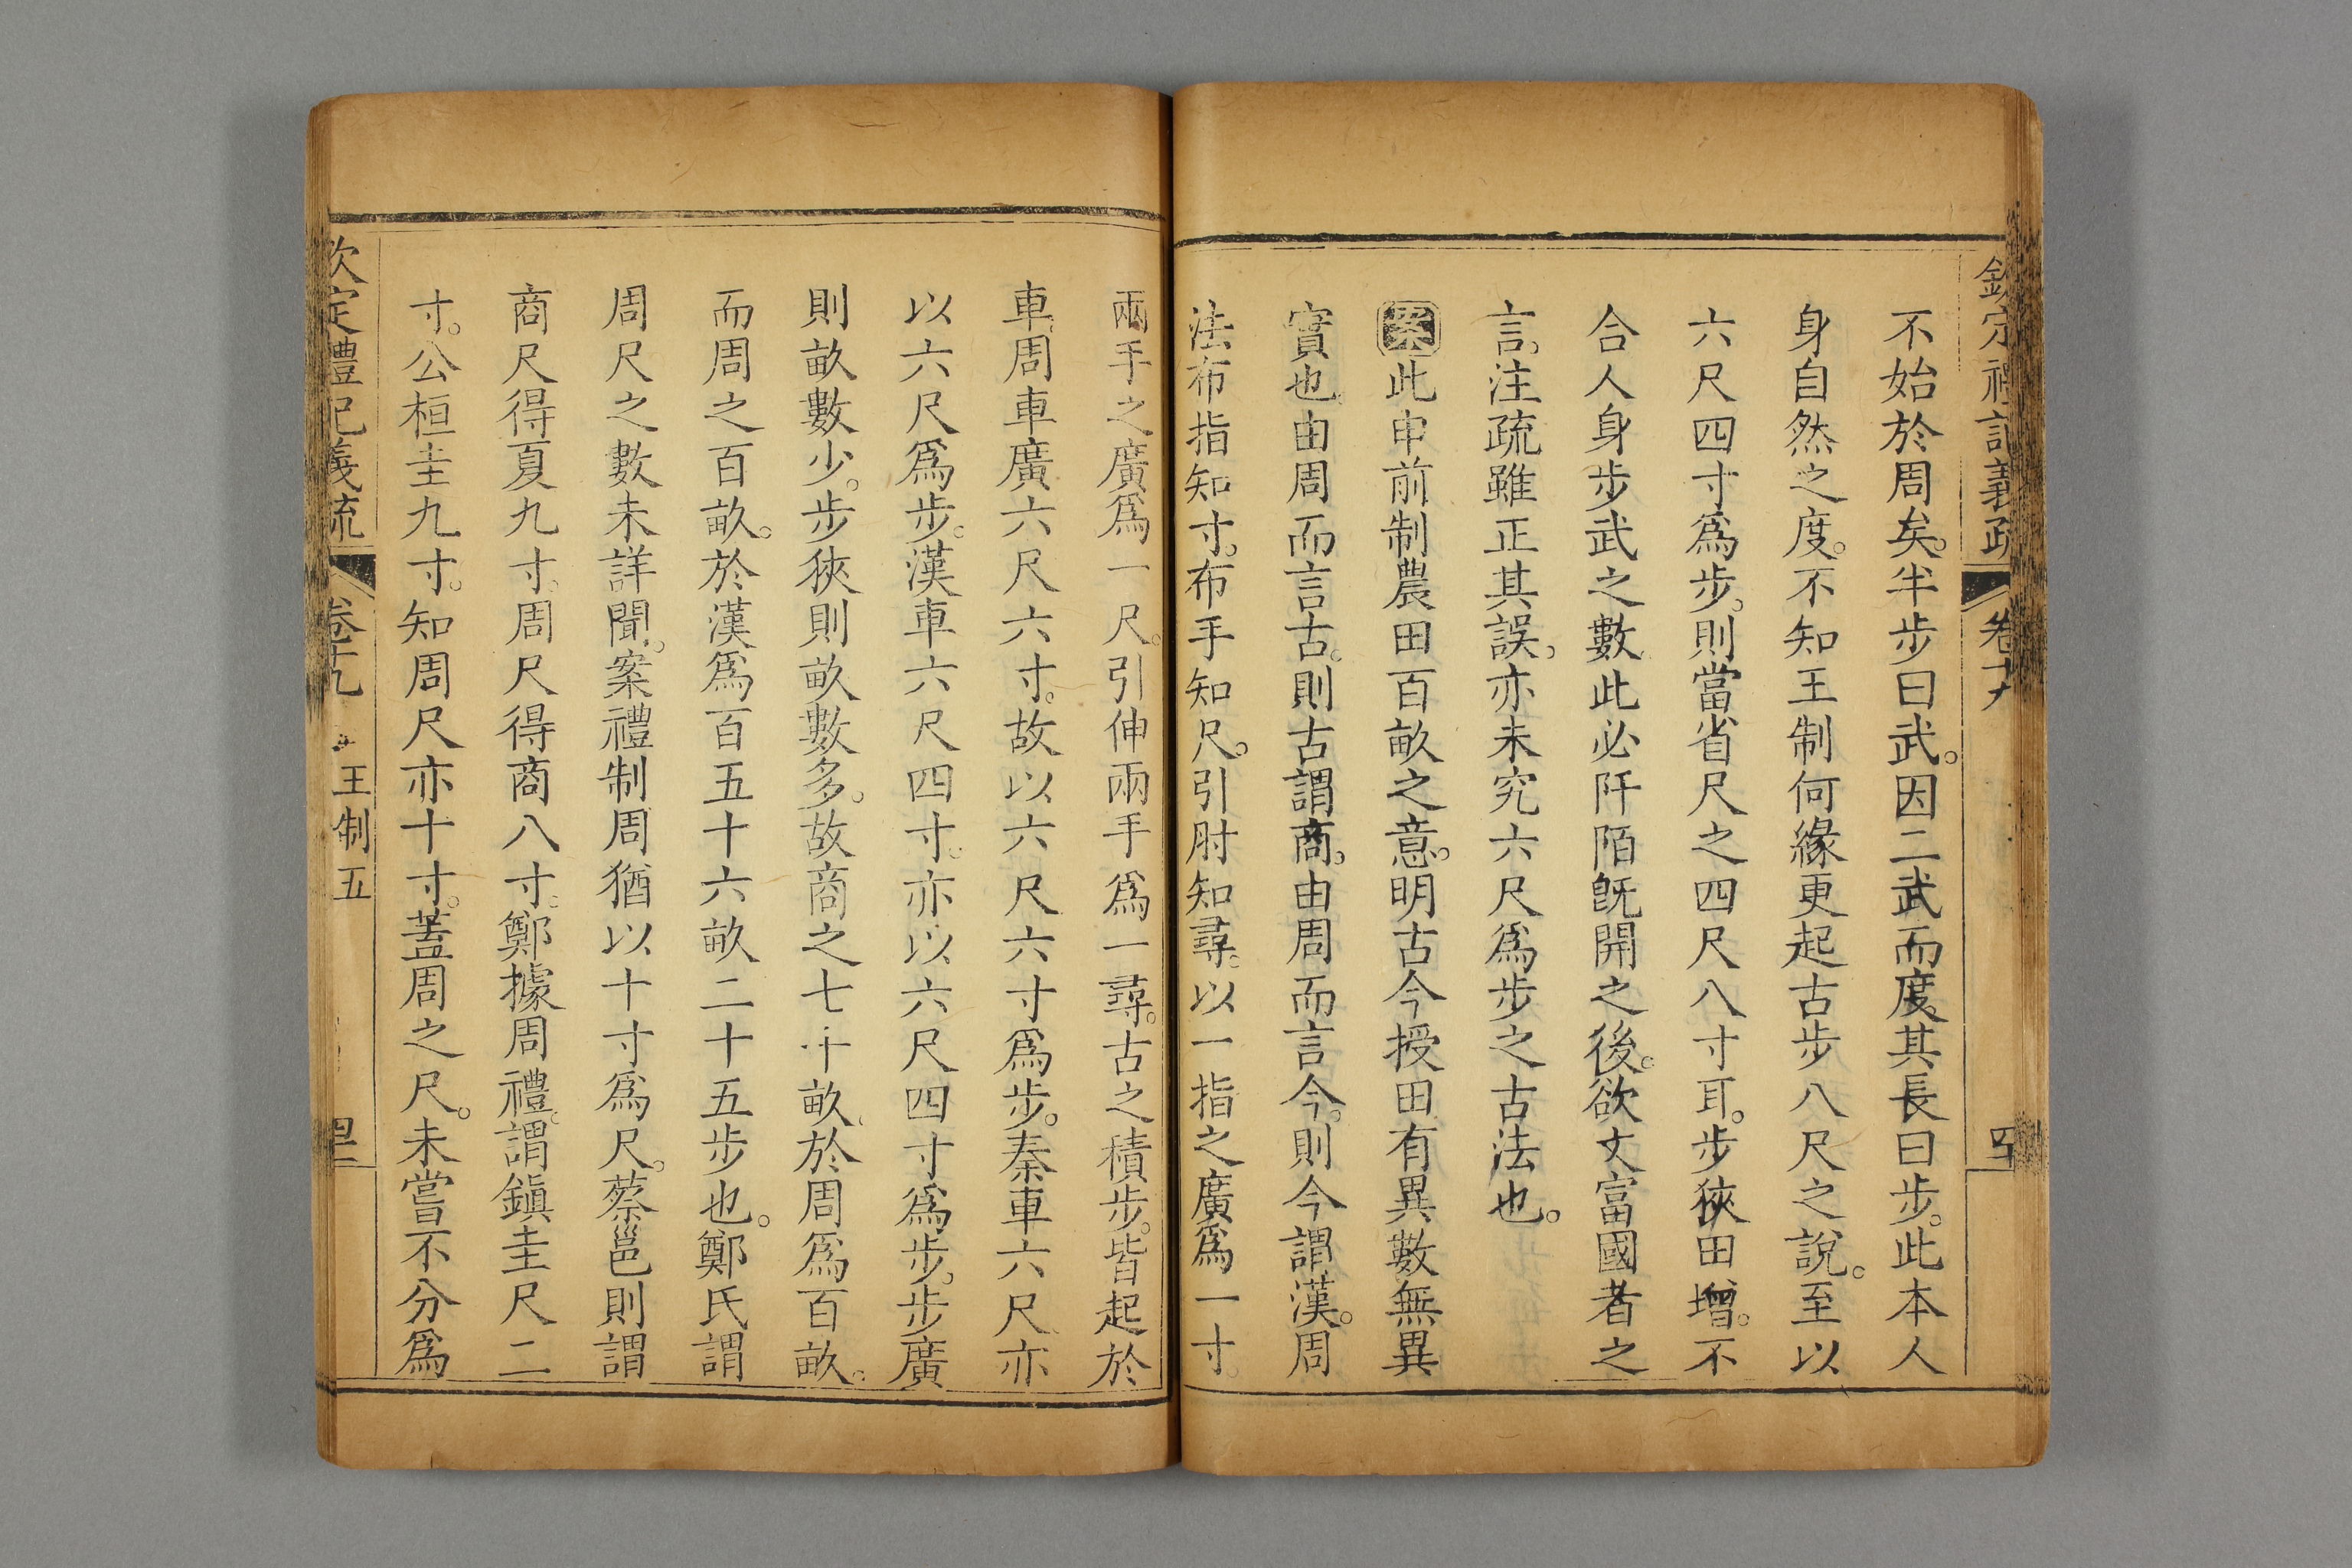 欽定禮記義疏 卷十九 四十
不始於周矣。半步曰武。因二武而度其長曰步。此本人
身自然之度。不知王制何緣更起古步八尺之說。至以
六尺四寸爲步。則當省尺之四尺八寸耳。步狹田增。不
合人身步武之數。此必阡陌旣開之後。欲文富國者之
言。注疏雖正其誤。亦未究六尺爲步之古法也。
案此申前制農田百畝之意。明古今授田有異數無異
實也。由周而言古。則古謂商。由周而言今。則今謂漢。周
法布指知寸。布手知尺。引肘知尋。以一指之廣爲一寸。
兩手之廣爲一尺。引伸兩手爲一尋。古之積步。皆起於
車。周車廣六尺六寸。故以六尺六寸爲步。秦車六尺。亦
以六尺爲步。漢車六尺四寸。亦以六尺四寸爲步。步廣
則畝數少。步狹則畝數多。故商之七十畝。於周爲百畝。
而周之百畝。於漢爲百五十六畝二十五步也。鄭氏謂
周尺之數未詳聞。案禮制周猶以十寸爲尺。蔡邕則謂
商尺得夏九寸。周尺得商八寸。鄭據周禮。謂鎭圭尺二
寸。公桓圭九寸。知周尺亦十寸。蓋周之尺。未嘗不分爲
欽定禮記義疏 卷十九 王制五 四十一